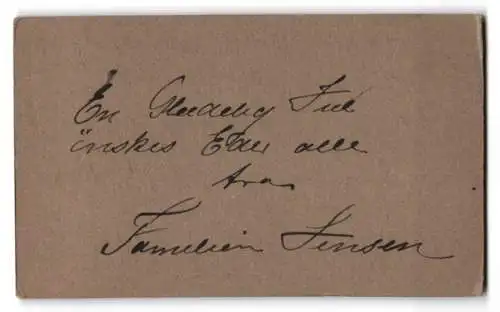 En Glædelig Jul
ønskes Eder alle
fra
Familien Jensen